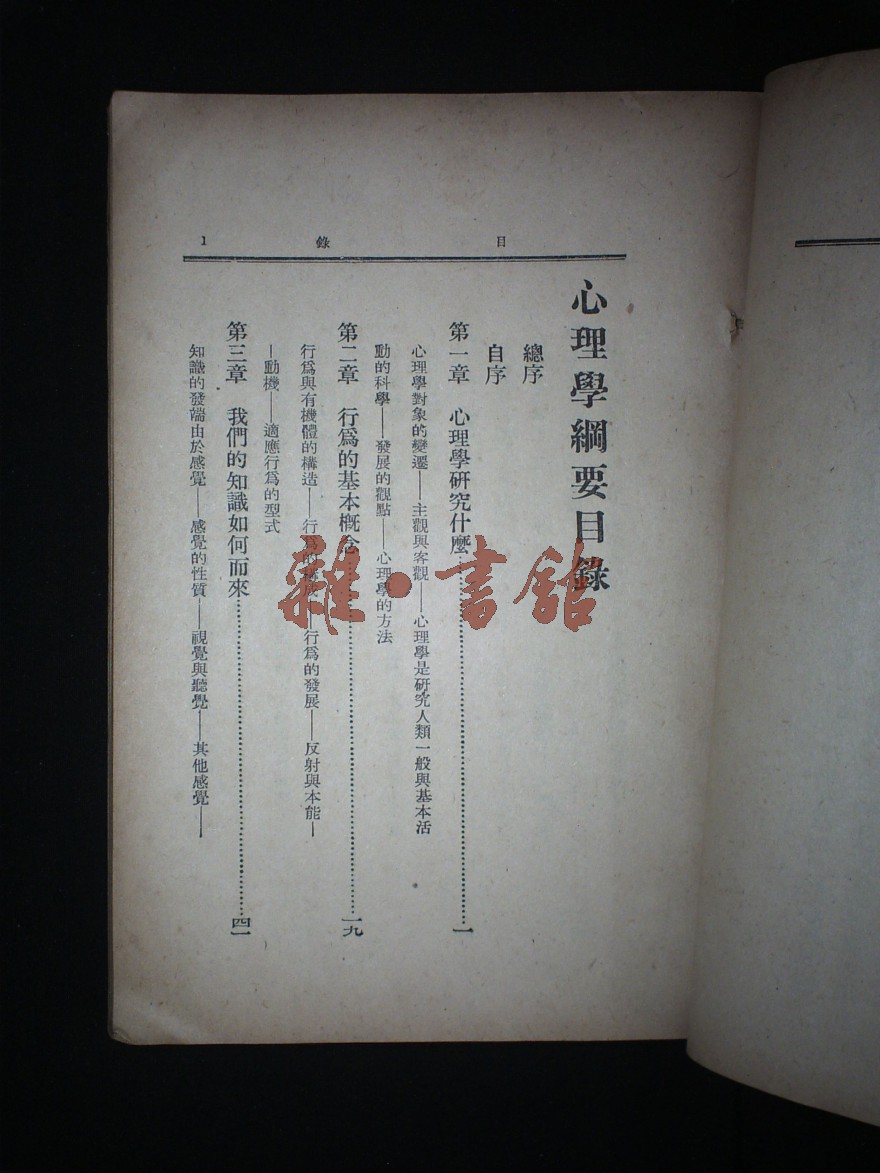 目錄 1
心理學綱要目錄
總序
自序
第一章 心理學研究什麼……一
心理學對象的變遷——主觀與客觀——心理學是研究人類一般與基本活
動的科學——發展的觀點——心理學的方法
第二章 行爲的基本概念……一九
行爲與有機體的構造——行爲的構成——行爲的發展——反射與本能—
—動機——適應行爲的型式
第三章 我們的知識如何而來……四一
知識的發端由於感覺——感覺的性質——視覺與聽覺——其他感覺——
雜·書館